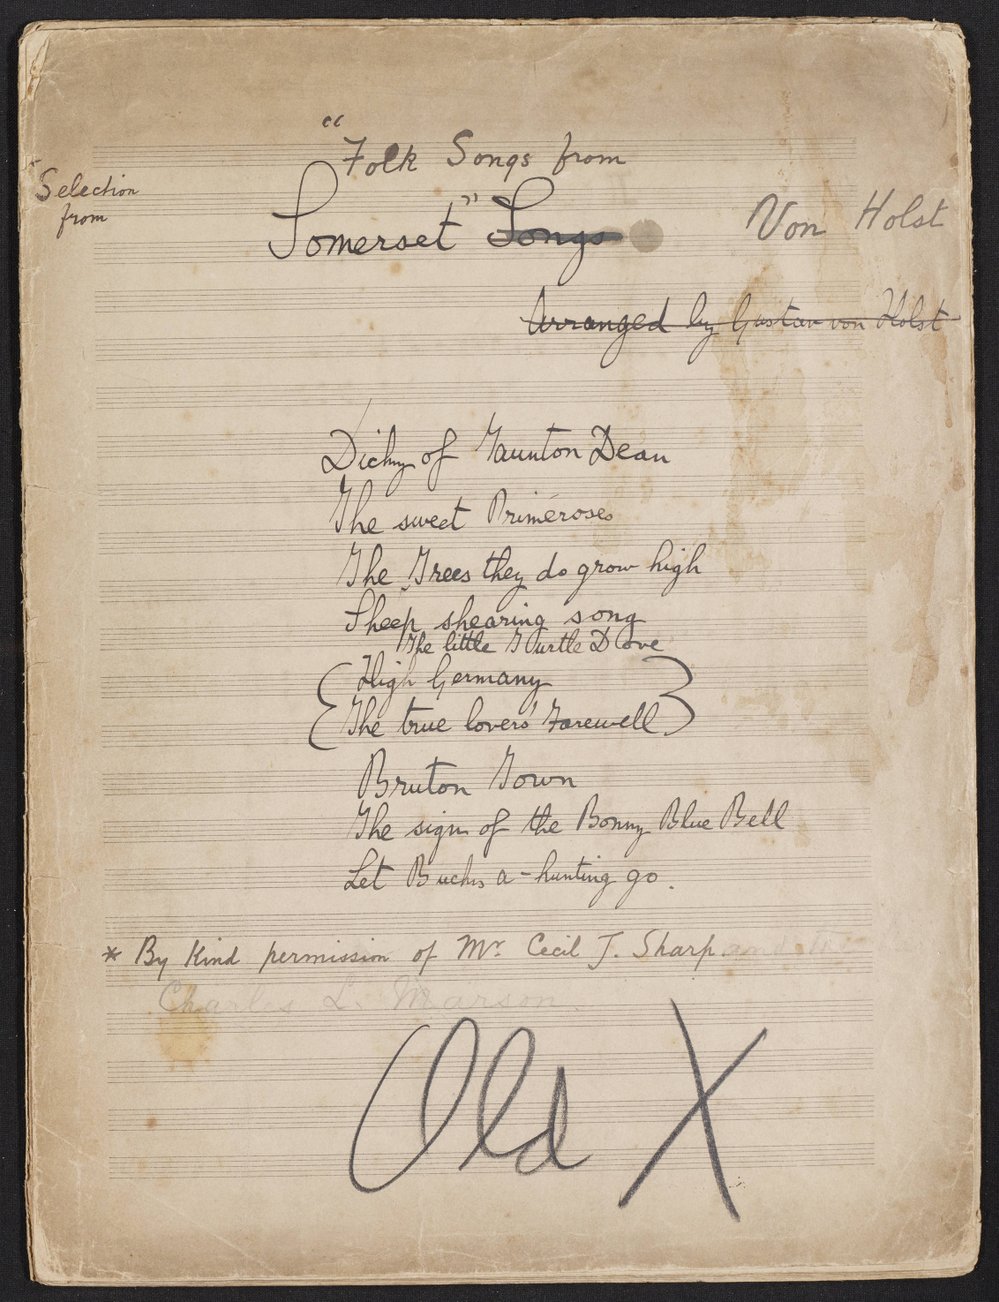 "Folk Songs from
Selection
from
Somerset" Songs
Von Holst
Arranged by Gustav von Holst
Dicky of Taunton Dean
The sweet Primeroses
The Trees they do grow high
Sheep shearing song
The little Turtle Dove
High Germany
The true lovers' Farewell
Bruton Town
The sign of the Bonny Blue Bell
Let Bucks a-hunting go.
* By Kind permission of Mr. Cecil J. Sharp and
Charles L. Marson
Old X